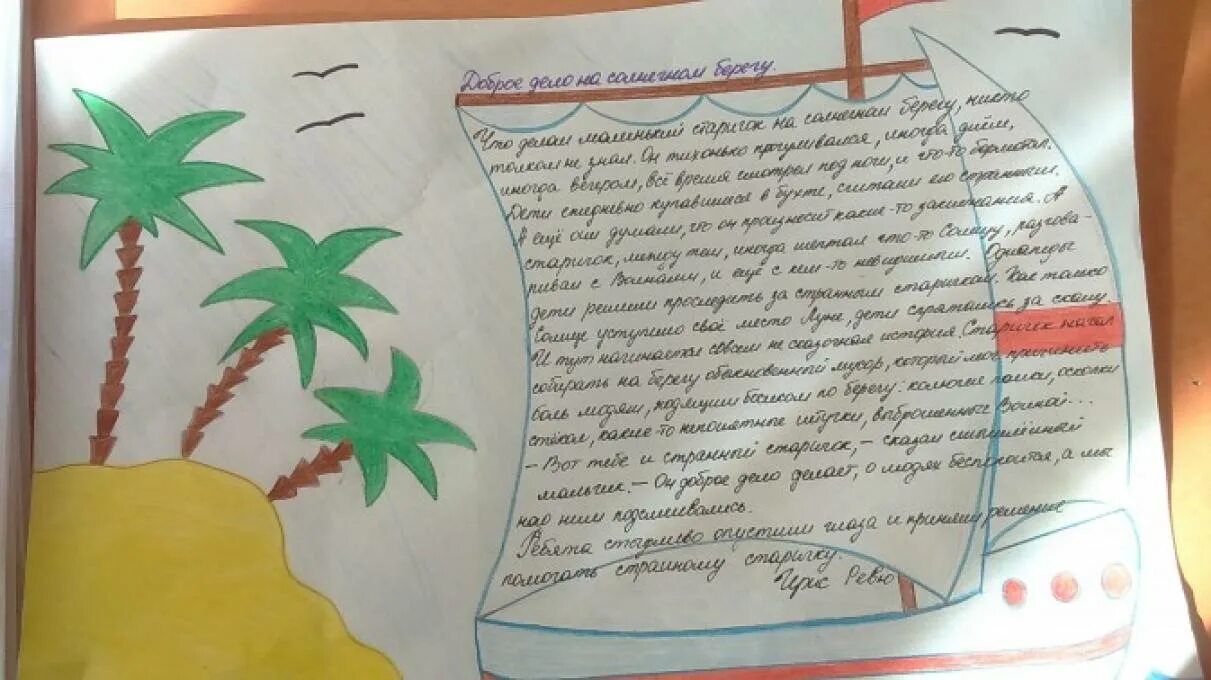 Доброе дело на солнечном берегу.
Что делал маленький старичок на солнечном берегу, никто
толком не знал. Он тихонько прогуливался, иногда днём,
иногда вечером, всё время смотрел под ноги, и что-то бормотал.
Дети ежедневно купавшиеся в бухте, считали его странным.
А ещё они думали, что он произносит какие-то заклинания. А
старичок, между тем, иногда шептал что-то Солнцу, разгова-
ривал с Волнами, и ещё с кем-то невидимым. Однажды
дети решили проследить за странным старичком. Как только
Солнце уступило своё место Луне, дети спрятались за скалу.
И тут начинается совсем не сказочная история. Старичок начал
собирать на берегу обыкновенный мусор, который мог причинить
боль людям, ходящим босиком по берегу: колючие палки, осколки
стёкол, какие-то непонятные штучки, выброшенные Волной...
- Вот тебе и странный старичок, - сказал смышлённый
мальчик. - Он доброе дело делает, о людях беспокоится, а мы
над ним подсмеивались.
Ребята стыдливо опустили глаза и приняли решение
помогать странному старичку.
Ирис Ревю